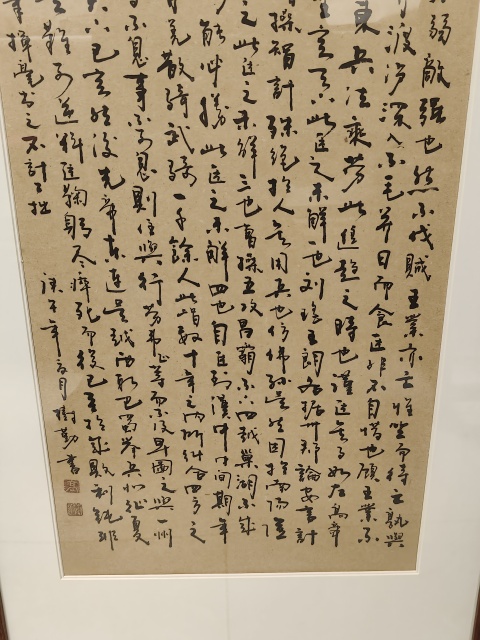 弱敵强也然不伐賊王業亦亡惟坐而待亡孰與
渡瀘深入不毛并日而食臣非不自惜也顧王業不
東兵法乘勞此進趨之時也謹陳其事如左高帝
定天下此臣之未解一也刘繇王朗各據州郡論安言計
操智計殊絕於人其用兵也仿佛孫吳然困於南陽險
之此臣之未解三也曹操五攻昌霸不下四越巢湖不成
能必勝此臣之未解四也自臣到漢中中间期年
叟散騎武騎一千餘人此皆數十年之内所糾合四方之
不息事不可息則住與行勞費正等而不及早圖之與一州
以已定然後先帝東連吳越西取巴蜀舉兵北征夏
難可逆料臣鞠躬尽瘁死而後已至於成敗利鈍非
揮毫書之不計工拙
庚子年月樹勤書